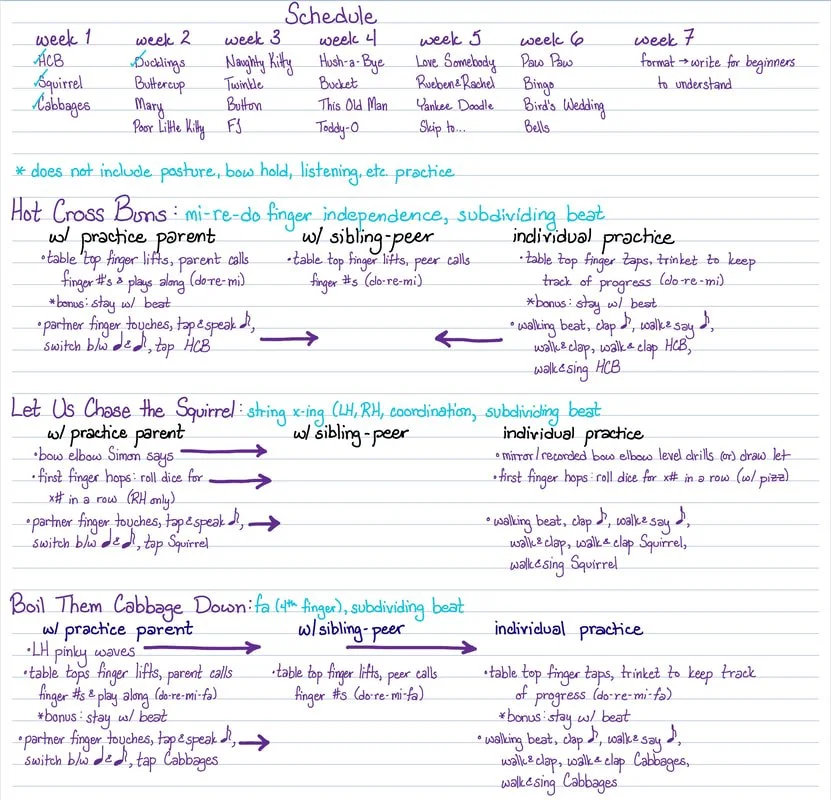 Schedule
week 1 week 2 week 3 week 4 week 5 week 6 week 7
HCB Ducklings Naughty Kitty Hush-a-Bye Love Somebody Paw Paw format → write for beginners
Squirrel Buttercup Twinkle Bucket Rueben & Rachel Bingo to understand
Cabbages Mary Button This Old Man Yankee Doodle Bird's Wedding
Poor Little Kitty FJ Toddy-O Skip to... Bells
* does not include posture, bow hold, listening, etc. practice
Hot Cross Buns: mi-re-do finger independence, subdividing beat
w/ practice parent w/ sibling-peer individual practice
• table top finger lifts, parent calls • table top finger lifts, peer calls • table top finger taps, trinket to keep
finger #'s & plays along (do-re-mi) finger #s (do-re-mi) track of progress (do-re-mi)
*bonus: stay w/ beat *bonus: stay w/ beat
• partner finger touches, tap & speak ♪, → ← • walking beat, clap ♪, walk & say ♪,
switch b/w ♩ & ♪, tap HCB walk & clap, walk & clap HCB,
walk & sing HCB
Let Us Chase the Squirrel: string x-ing (LH, RH, coordination, subdividing beat
w/ practice parent w/ sibling-peer individual practice
• bow elbow Simon says → • mirror/recorded bow elbow level drills (or) draw let
• first finger hops: roll dice for → • first finger hops: roll dice for x# in a row (w/ pizz)
x# in a row (RH only)
• partner finger touches, tap & speak ♪, → • walking beat, clap ♪, walk & say ♪,
switch b/w ♩ & ♪, tap Squirrel walk & clap, walk & clap Squirrel,
walk & sing Squirrel
Boil Them Cabbage Down: fa (4th finger), subdividing beat
w/ practice parent w/ sibling-peer individual practice
• LH pinky waves → →
• table tops finger lifts, parent calls • table top finger lifts, peer calls • table top finger taps, trinket to keep track
finger #s & play along (do-re-mi-fa) finger #s (do-re-mi-fa) of progress (do-re-mi-fa)
*bonus: stay w/ beat *bonus: stay w/ beat
• partner finger touches, tap & speak ♪, → • walking beat, clap ♪, walk & say ♪,
switch b/w ♩ & ♪, tap Cabbages walk & clap, walk & clap Cabbages,
walk & sing Cabbages